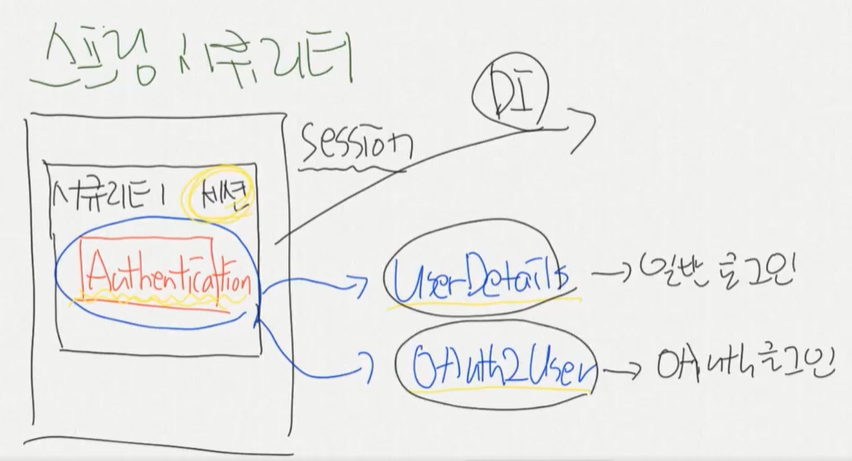 스프링 시큐리티
DI
Session
시큐리티 세션
Authentication
UserDetails → 일반 로그인
OAuth2User → OAuth 로그인